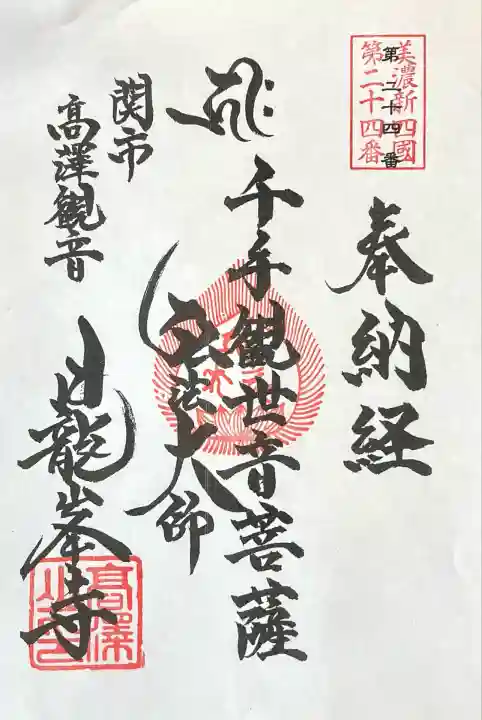 美濃新四國
第二十四番
第二十四番
奉納経
千手観世音菩薩
弘法大師
関市
高澤観音
日龍峯寺
高澤